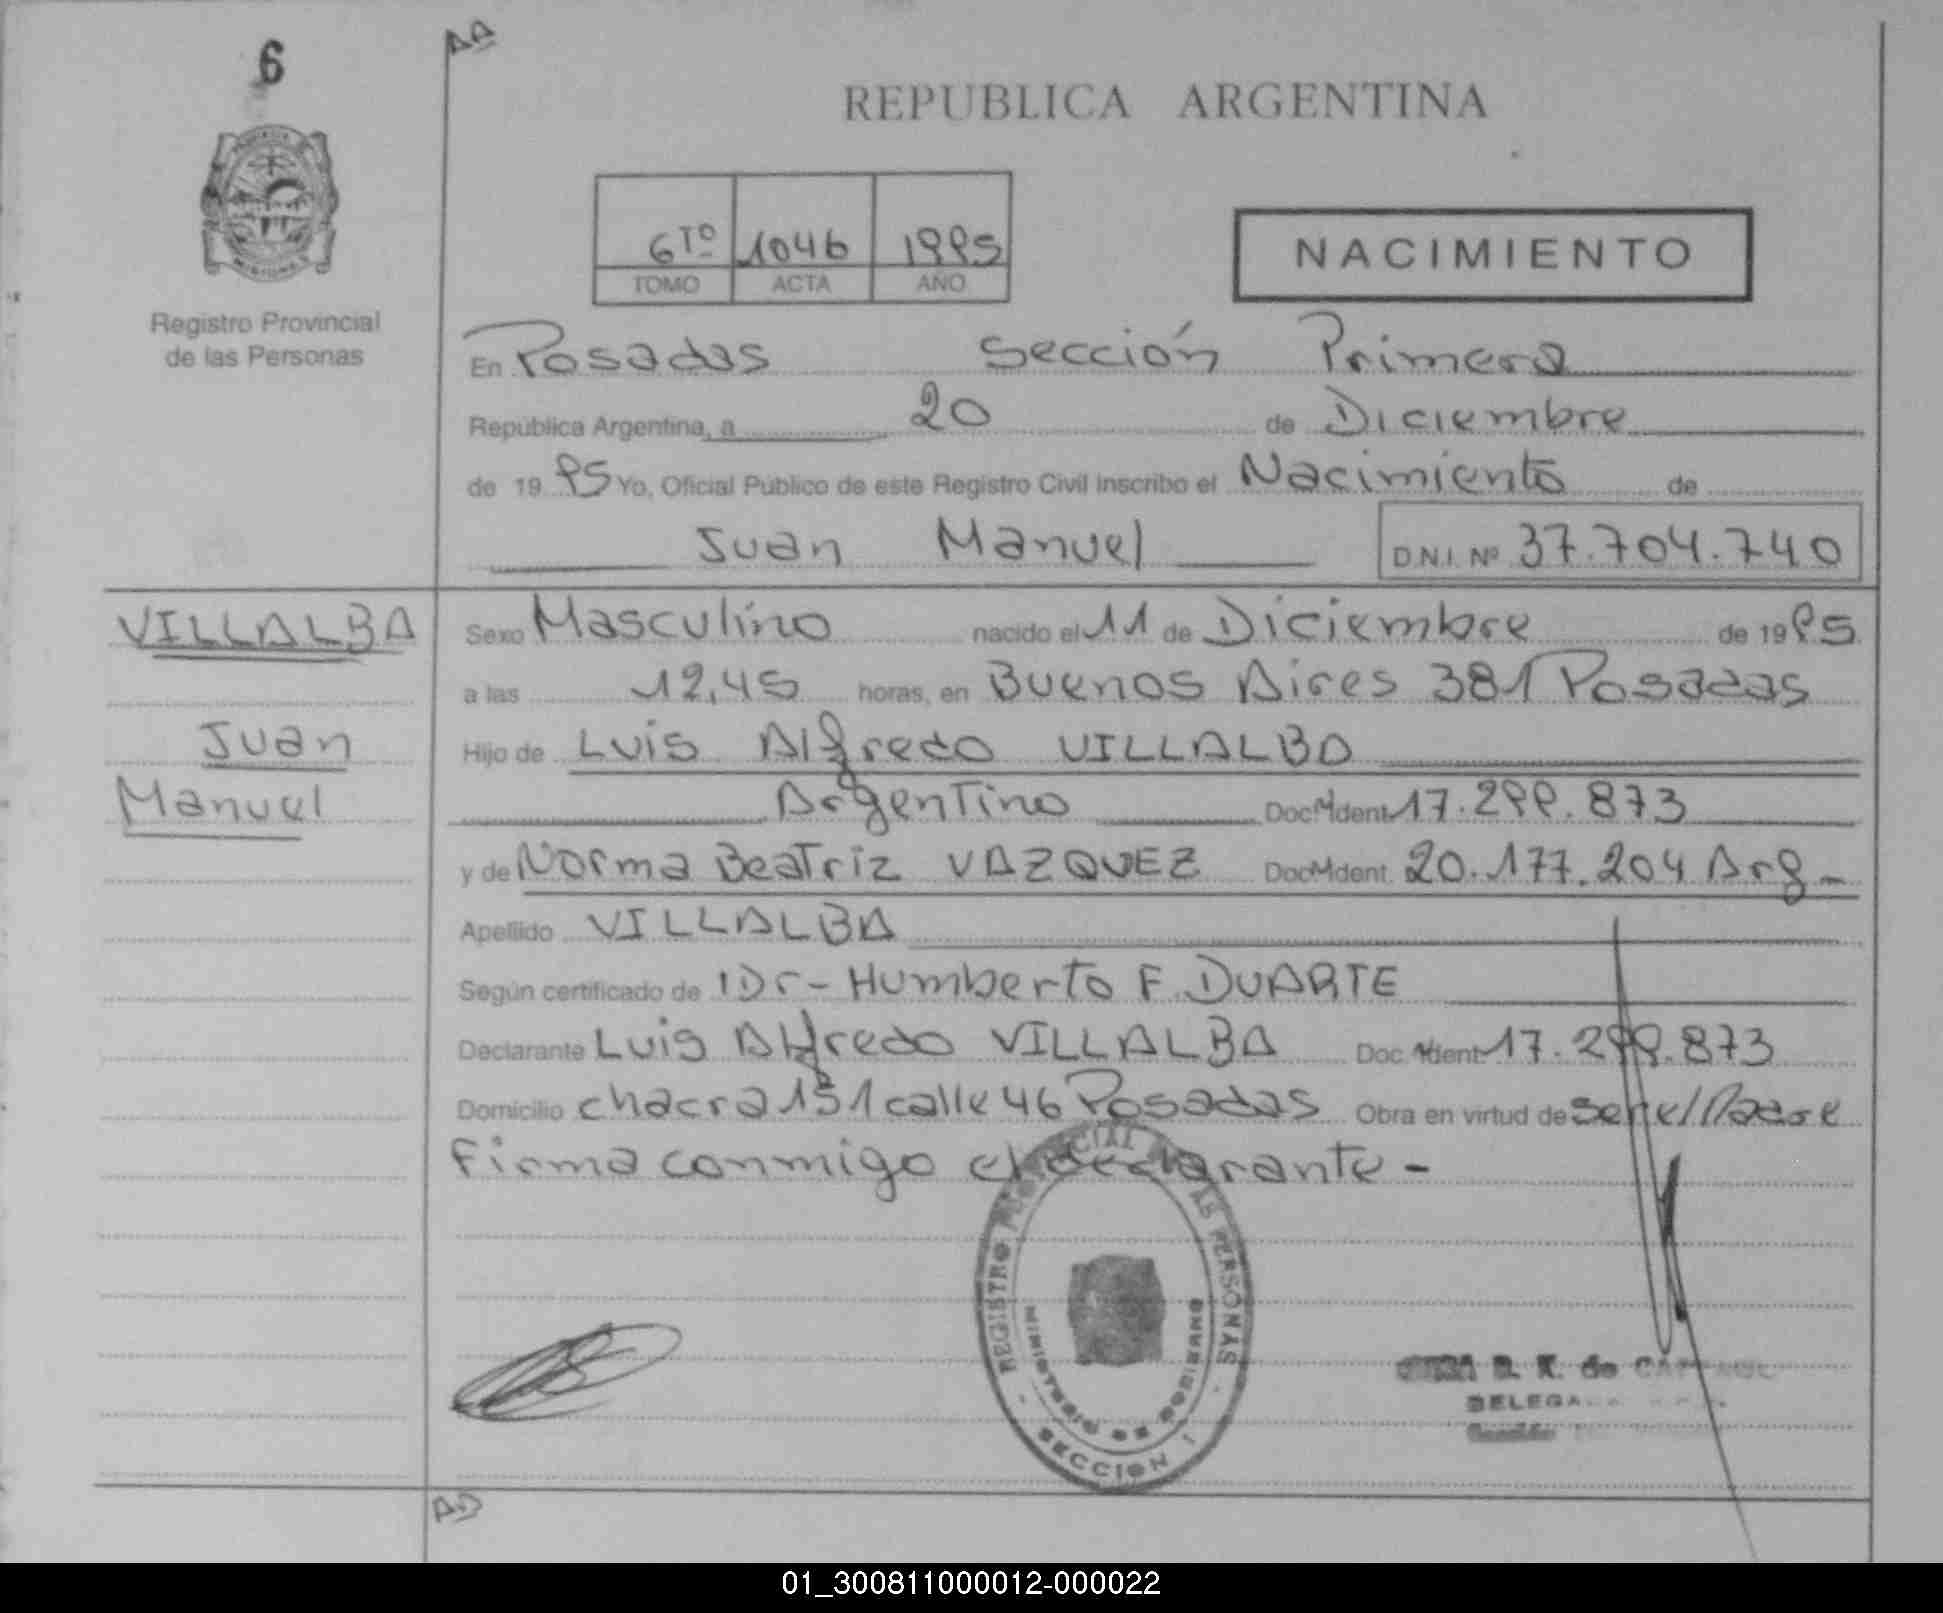 6
AA
REPUBLICA ARGENTINA
6TO 1046 1995
TOMO ACTA AÑO
NACIMIENTO
Registro Provincial
de las Personas
En Posadas Sección Primera
República Argentina, a 20 de Diciembre
de 19 95 Yo, Oficial Público de este Registro Civil inscribo el Nacimiento de
Juan Manuel D.N.I. Nº 37.704.740
VILLALBA
Juan
Manuel
Sexo Masculino nacido el 11 de Diciembre de 19 95
a las 12,45 horas, en Buenos Aires 381 Posadas
Hijo de Luis Alfredo VILLALBA
Argentino Doc. Ident. 17.299.873
y de Norma Beatriz VAZQUEZ Doc. Ident. 20.177.204 Arg-
Apellido VILLALBA
Según certificado de Dr- Humberto F. DUARTE
Declarante Luis Alfredo VILLALBA Doc. Ident. 17.299.873
Domicilio chacra 151 calle 46 Posadas Obra en virtud de ser el Padre
Firma conmigo el declarante-
REGISTRO PROVINCIAL DE LAS PERSONAS
MINISTERIO DE GOBIERNO
SECCION 1
de
DELEGA
01_300811000012-000022